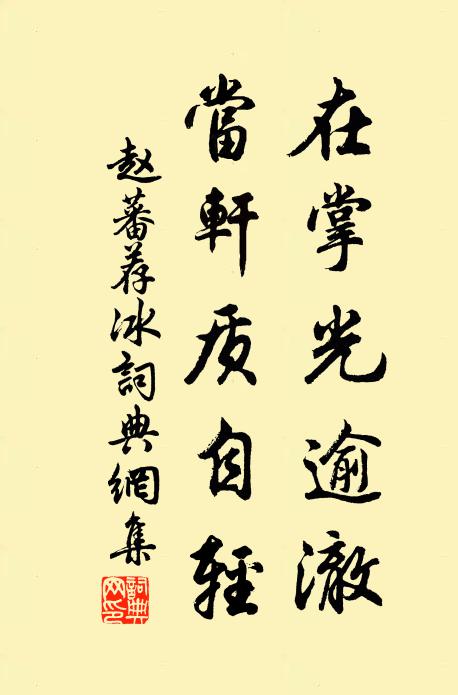 在掌光逾澈
當軒质自輕
赵蕃荐冰詞典網集
詞典网印